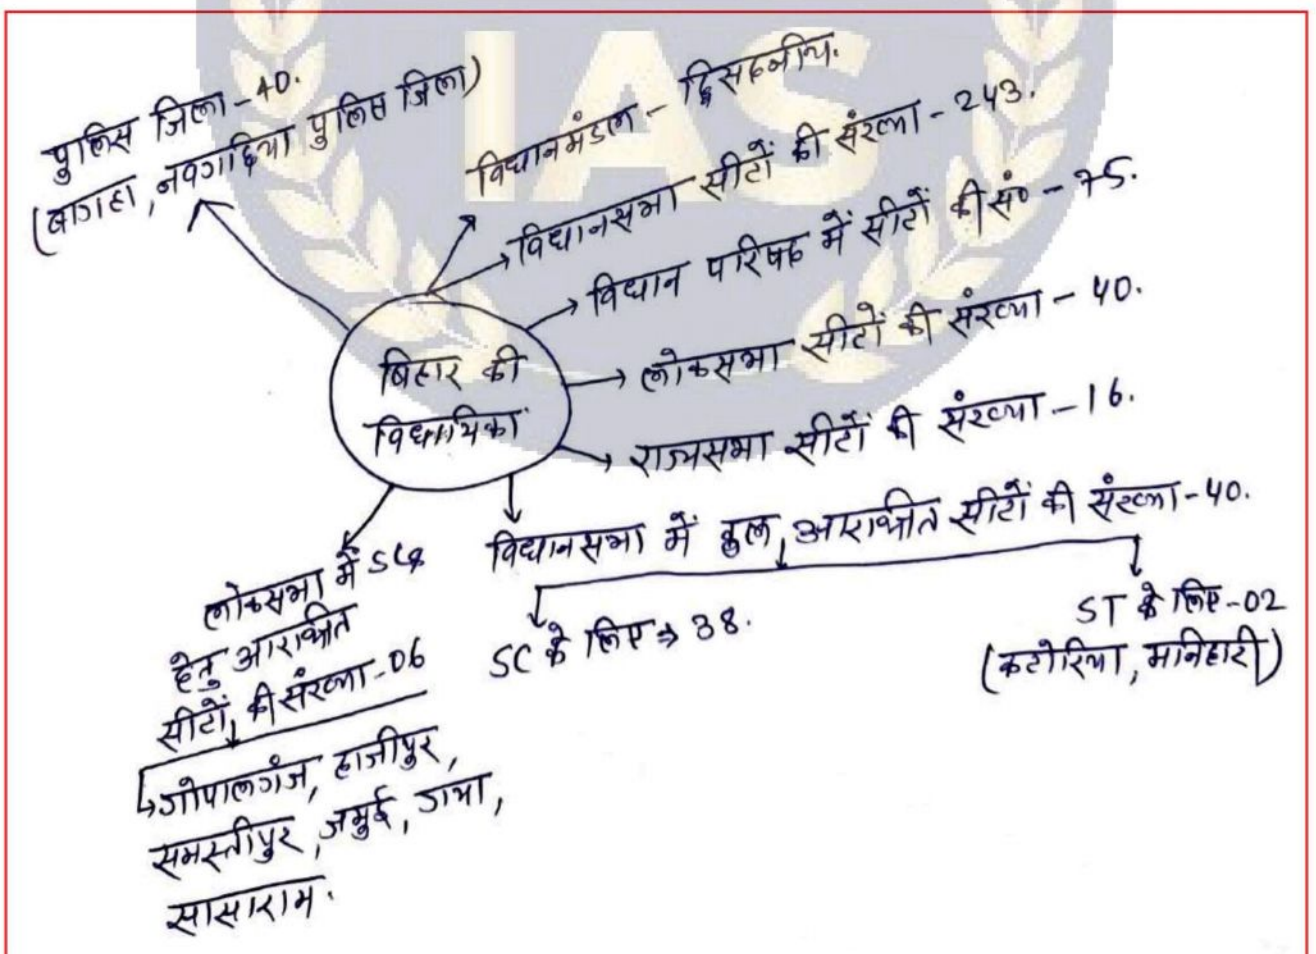 IAS
पुलिस जिला - 40.
(बागहा, नवगछिया पुलिस जिला)
विधानमंडल - द्विसदनीय.
विधानसभा सीटों की संख्या - 243.
विधान परिषद में सीटों की सं० - 75.
लोकसभा सीटों की संख्या - 40.
राज्यसभा सीटों की संख्या - 16.
बिहार की
विधायिका
विधानसभा में कुल आरक्षीत सीटों की संख्या - 40.
SC के लिए ⇒ 38.
ST के लिए - 02
(कटोरिया, मनिहारी)
लोकसभा में SCs
हेतु आरक्षीत
सीटों की संख्या - 06
गोपालगंज, हाजीपुर,
समस्तीपुर, जमुई, गया,
सासाराम.